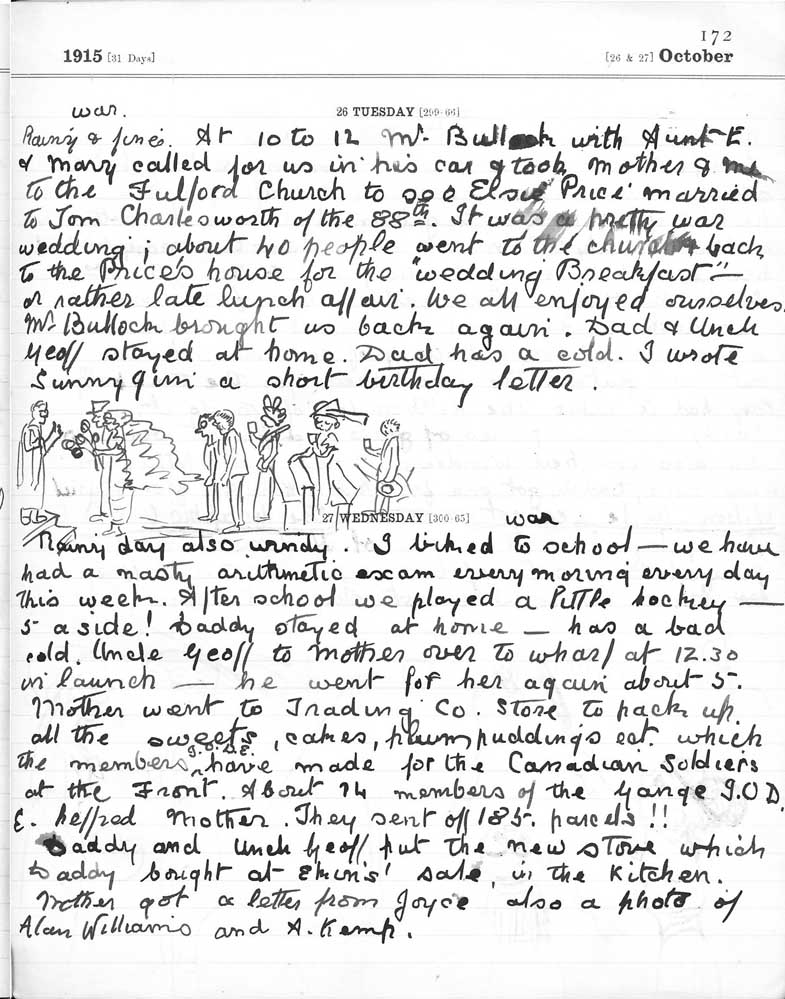 172
1915 [31 Days] [26 & 27] October
war. 26 TUESDAY [299-66]
Rainy & fine. At 10 to 12 Mr. Bullock with Aunt E.
& Mary called for us in his car & took Mother & me
to the Fulford Church to see Elsie Price married
to Tom Charlesworth of the 88th. It was a pretty war
wedding; about 40 people went to the church & back
to the Price's house for the "wedding Breakfast" —
or rather late lunch affair. We all enjoyed ourselves.
Mr. Bullock brought us back again. Dad & Uncle
Geoff stayed at home. Dad has a cold. I wrote
Sunny Jim a short birthday letter.
27 WEDNESDAY [300-65] war
Rainy day also windy. I biked to school — we have
had a nasty arithmetic exam every morning every day
this week. After school we played a little hockey —
5 a side! Daddy stayed at home — has a bad
cold. Uncle Geoff to Mother over to wharf at 12.30
in launch — he went for her again about 5.
Mother went to Trading Co. Store to pack up
all the sweets, cakes, plum puddings eat. which
the members I.O.D.E. have made for the Canadian Soldiers
at the Front. About 14 members of the Gange I.O.D.
E. helped Mother. They sent off 185. parcels!!
Daddy and Uncle Geoff put the new stove which
Daddy bought at Ekins' sale, in the Kitchen.
Mother got a letter from Joyce also a photo of
Alan Williams and A. Kemp.